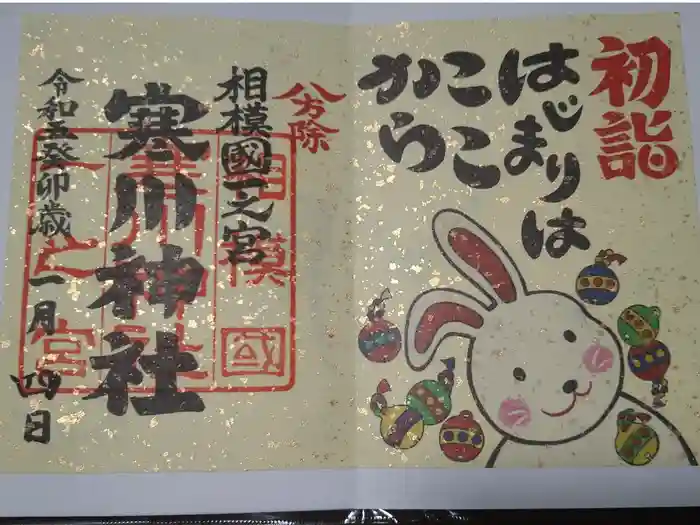 初詣
はじまりは
ここ
から
八方除
相模國一之宮
寒川神社
令和五癸卯歳
一月四日
相模國
一之宮